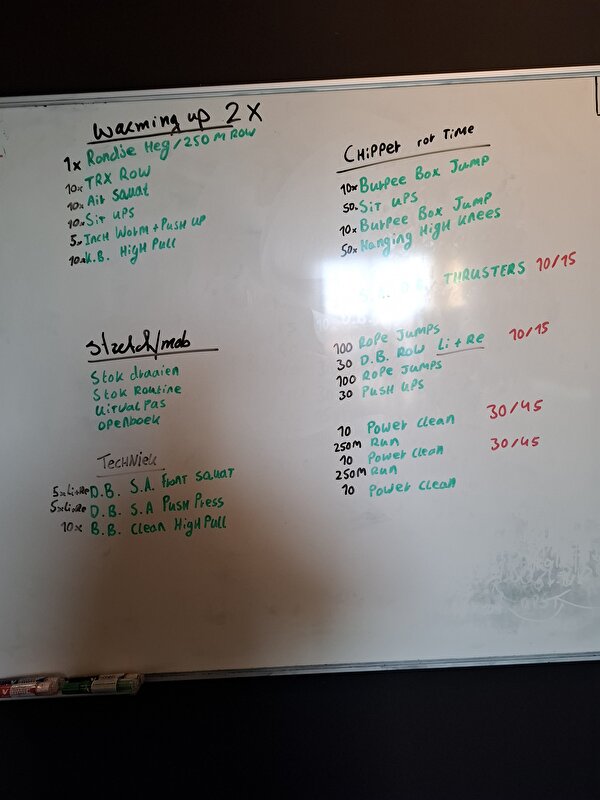 Warming up 2x
1x Rondje Heg/250 M Row
10x TRX Row
10x Air Squat
10x Sit ups
5x Inch Worm + Push up
10x K.B. High Pull
Stretch/mob
Stok draaien
Stok Routine
Uitvalpas
Openboek
Techniek
5x Li+Re D.B. S.A. Front Squat
5x Li+Re D.B. S.A Push Press
10x B.B. Clean High Pull
Chipper For Time
10x Burpee Box Jump
50x Sit ups
10x Burpee Box Jump
50x Hanging High Knees
Thrusters 10/15
100 Rope Jumps
30 D.B. Row Li + Re 10/15
100 Rope Jumps
30 Push ups
10 Power Clean 30/45
250M Run
10 Power Clean 30/45
250M Run
10 Power Clean